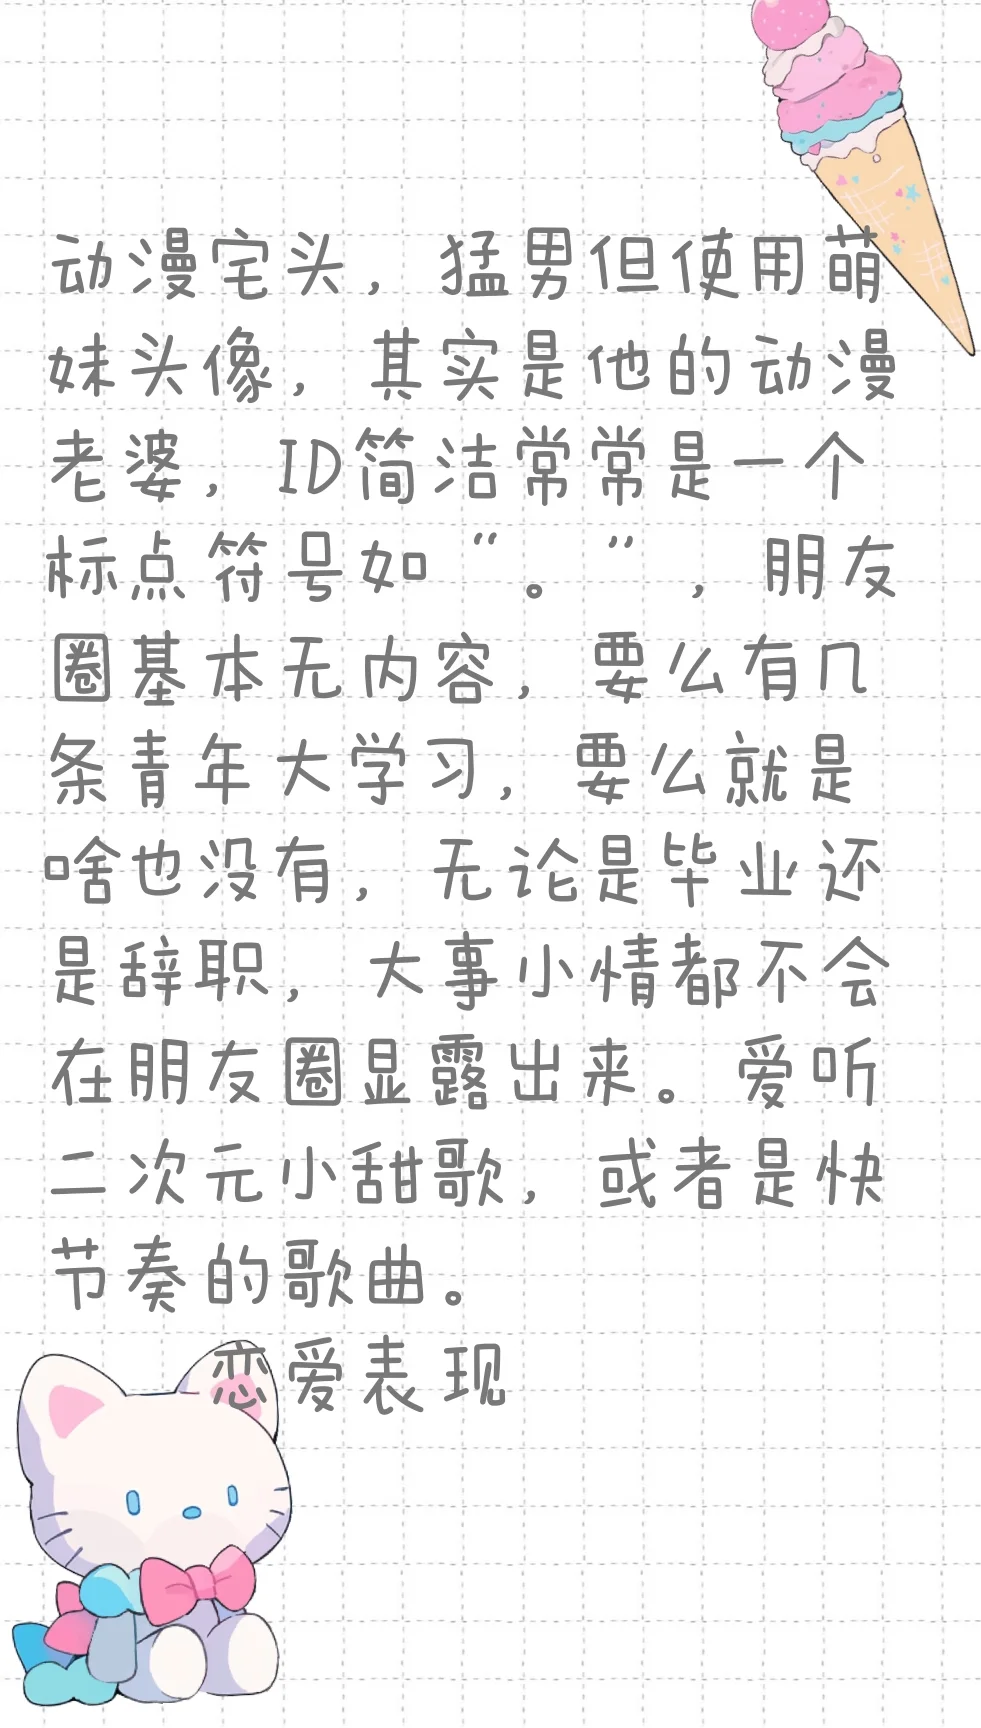 动漫宅头，猛男但使用萌
妹头像，其实是他的动漫
老婆，ID简洁常常是一个
标点符号如“。”，朋友
圈基本无内容，要么有几
条青年大学习，要么就是
啥也没有，无论是毕业还
是辞职，大事小情都不会
在朋友圈显露出来。爱听
二次元小甜歌，或者是快
节奏的歌曲。
恋爱表现